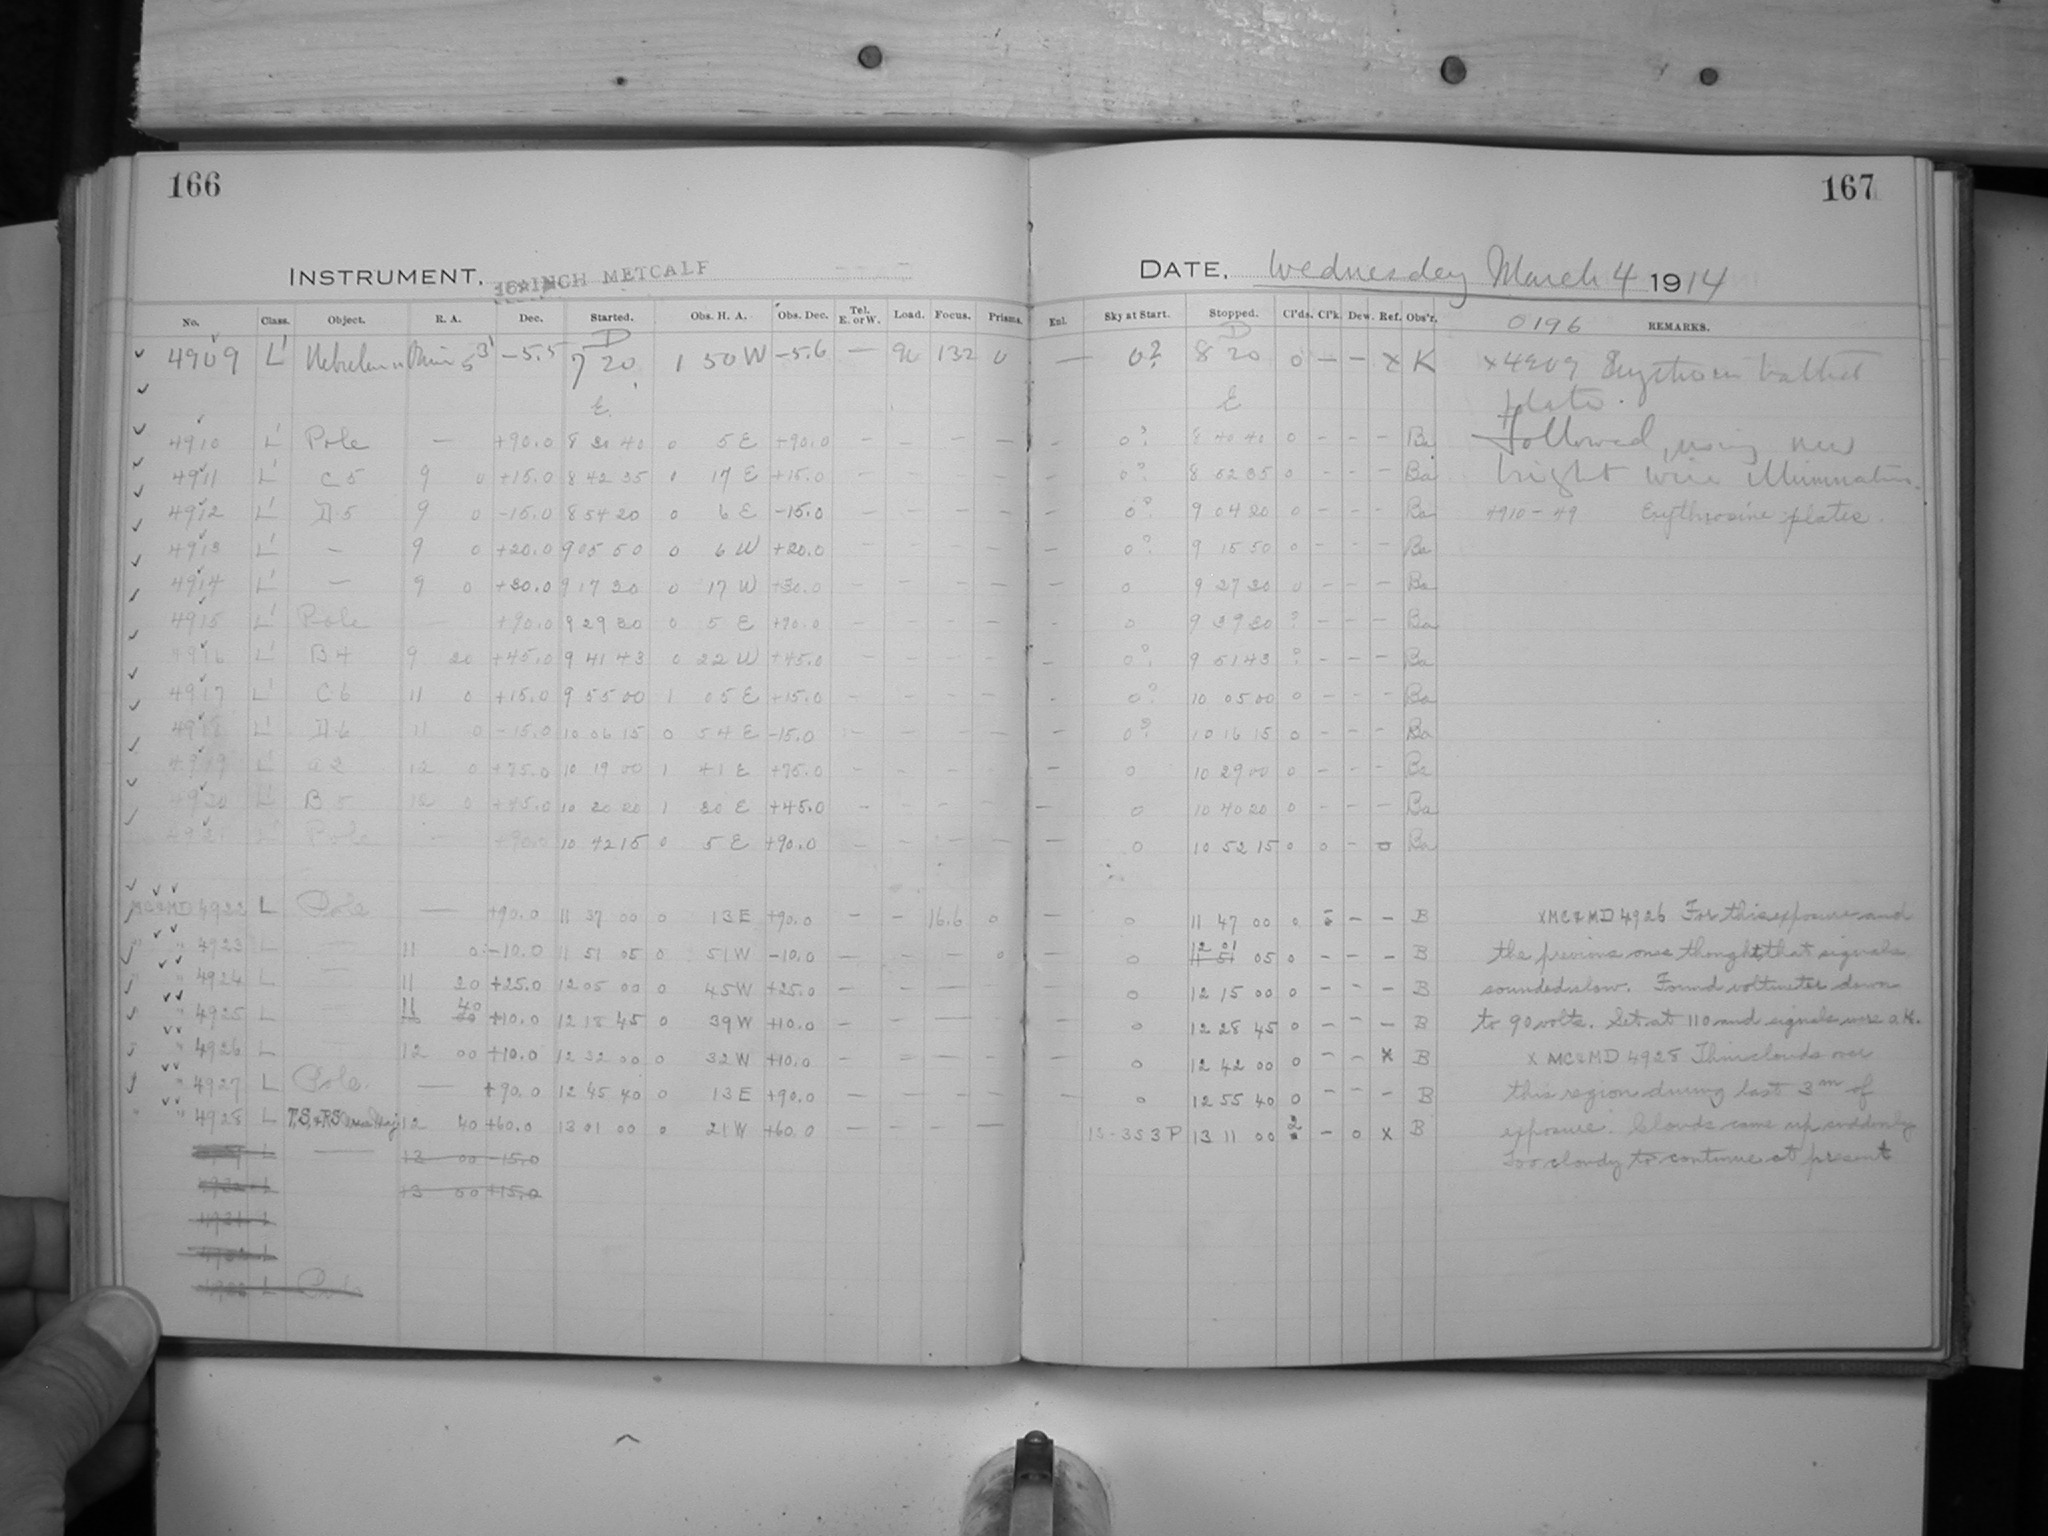 166
167
INSTRUMENT, 16 INCH METCALF
DATE, Wednesday March 4 1914
No. Class. Object. R. A. Dec. Started. Obs. H. A. Obs. Dec. Tel. E. or W. Load. Focus. Prisms. Enl. Sky at Start. Stopped. Cl'ds. Cl'k. Dew. Ref. Obs'r. 0196 REMARKS.
D D
4909 L' 5 3 -5.5 7 20 1 50 W -5.6 — 132 0 — 0? 8 20 0 — — x K x4909
E. E plate.
4910 L' Pole — +90.0 8 30 40 0 5 E +90.0 — — — — — 0? 8 40 40 0 — — — Ba Followed, using new
4911 L' C 5 9 0 +15.0 8 42 35 0 17 E +15.0 — — — — — 0? 8 52 35 0 — — — Ba bright wire illumination.
4912 L' D.5 9 0 -15.0 8 54 20 0 6 E -15.0 — — — — — 0? 9 04 20 0 — — — Ba 4910-49 Erythrosine plates.
4913 L' — 9 0 +20.0 9 05 50 0 6 W +20.0 — — — — — 0? 9 15 50 0 — — — Ba
4914 L' — 9 0 +30.0 9 17 30 0 17 W +30.0 — — — — — 0 9 27 30 0 — — — Ba
4915 L' Pole — +90.0 9 29 30 0 5 E +90.0 — — — — — 0 9 39 30 ? — — — Ba
4916 L' B 4 9 20 +45.0 9 41 43 0 22 W +45.0 — — — — — 0? 9 51 43 ? — — — Ba
4917 L' C 6 11 0 +15.0 9 55 00 1 05 E +15.0 — — — — — 0? 10 05 00 0 — — — Ba
4918 L' D.6 11 0 -15.0 10 06 15 0 54 E -15.0 — — — — — 0? 10 16 15 0 — — — Ba
4919 L' a 2 12 0 +75.0 10 19 00 1 41 E +75.0 — — — — — 0 10 29 00 0 — — — Ba
4920 L' B 5 12 0 +45.0 10 30 20 1 30 E +45.0 — — — — — 0 10 40 20 0 — — — Ba
4921 L' Pole — +90.0 10 42 15 0 5 E +90.0 — — — — — 0 10 52 15 0 0 — 0 Ba
MC&MD 4922 L Pole — +90.0 11 37 00 0 13 E +90.0 — — 16.6 0 — 0 11 47 00 0 — — B xMC&MD 4926 For this exposure and
" " 4923 L — 11 0 -10.0 11 51 05 0 51 W -10.0 — — — 0 — 0 12 01 11 51 05 0 — — — B the previous one thought that signals
" " 4924 L — 11 20 +25.0 12 05 00 0 45 W +25.0 — — — — — 0 12 15 00 0 — — — B sounded slow. Found voltmeter down
" " 4925 L — 11 40 +10.0 12 18 45 0 39 W +10.0 — — — — — 0 12 28 45 0 — — — B to 90 volts. Set at 110 and signals were o.k.
" " 4926 L — 12 00 +10.0 12 32 00 0 32 W +10.0 — — — — — 0 12 42 00 0 — — x B x MC&MD 4928 Thin clouds over
" " 4927 L Pole. — +90.0 12 45 40 0 13 E +90.0 — — — — — 0 12 55 40 0 — — — B this region during last 3m of
" " 4928 L T, S, & RS Ursae Maj 12 40 +60.0 13 01 00 0 21 W +60.0 — — — — 13-353P 13 11 00 2 — 0 x B exposure. Clouds came up suddenly
L — 12 00 -15.0 Too cloudy to continue at present
L 13 00 +15.0
L
L
L Pole